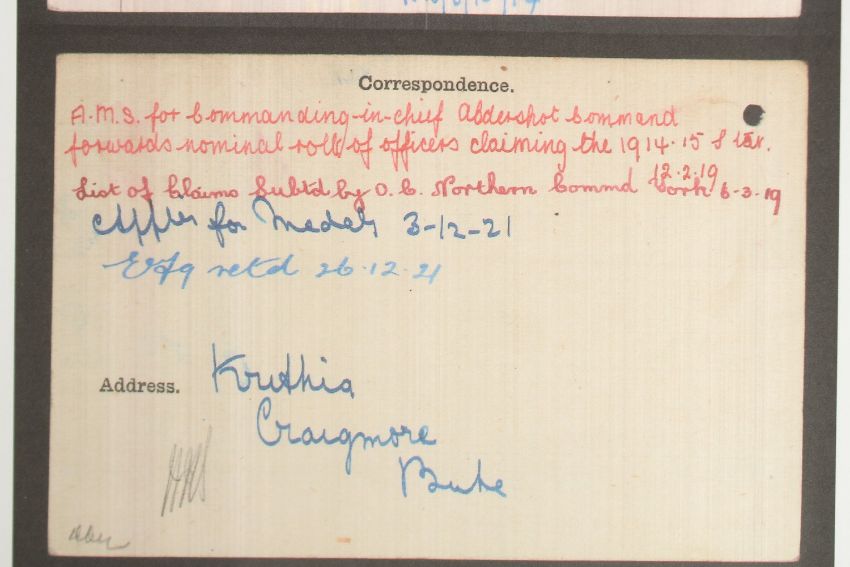 Correspondence.
A.M.S. for Commanding-in-chief Aldershot Command
forwards nominal roll of officers claiming the 1914-15 Star.
12.2.19
List of Claims Subtd by O.C. Northern Commd York 6-3-19
Applies for Medals 3-12-21
retd 26.12.21
Address.
Craigmore
Bute